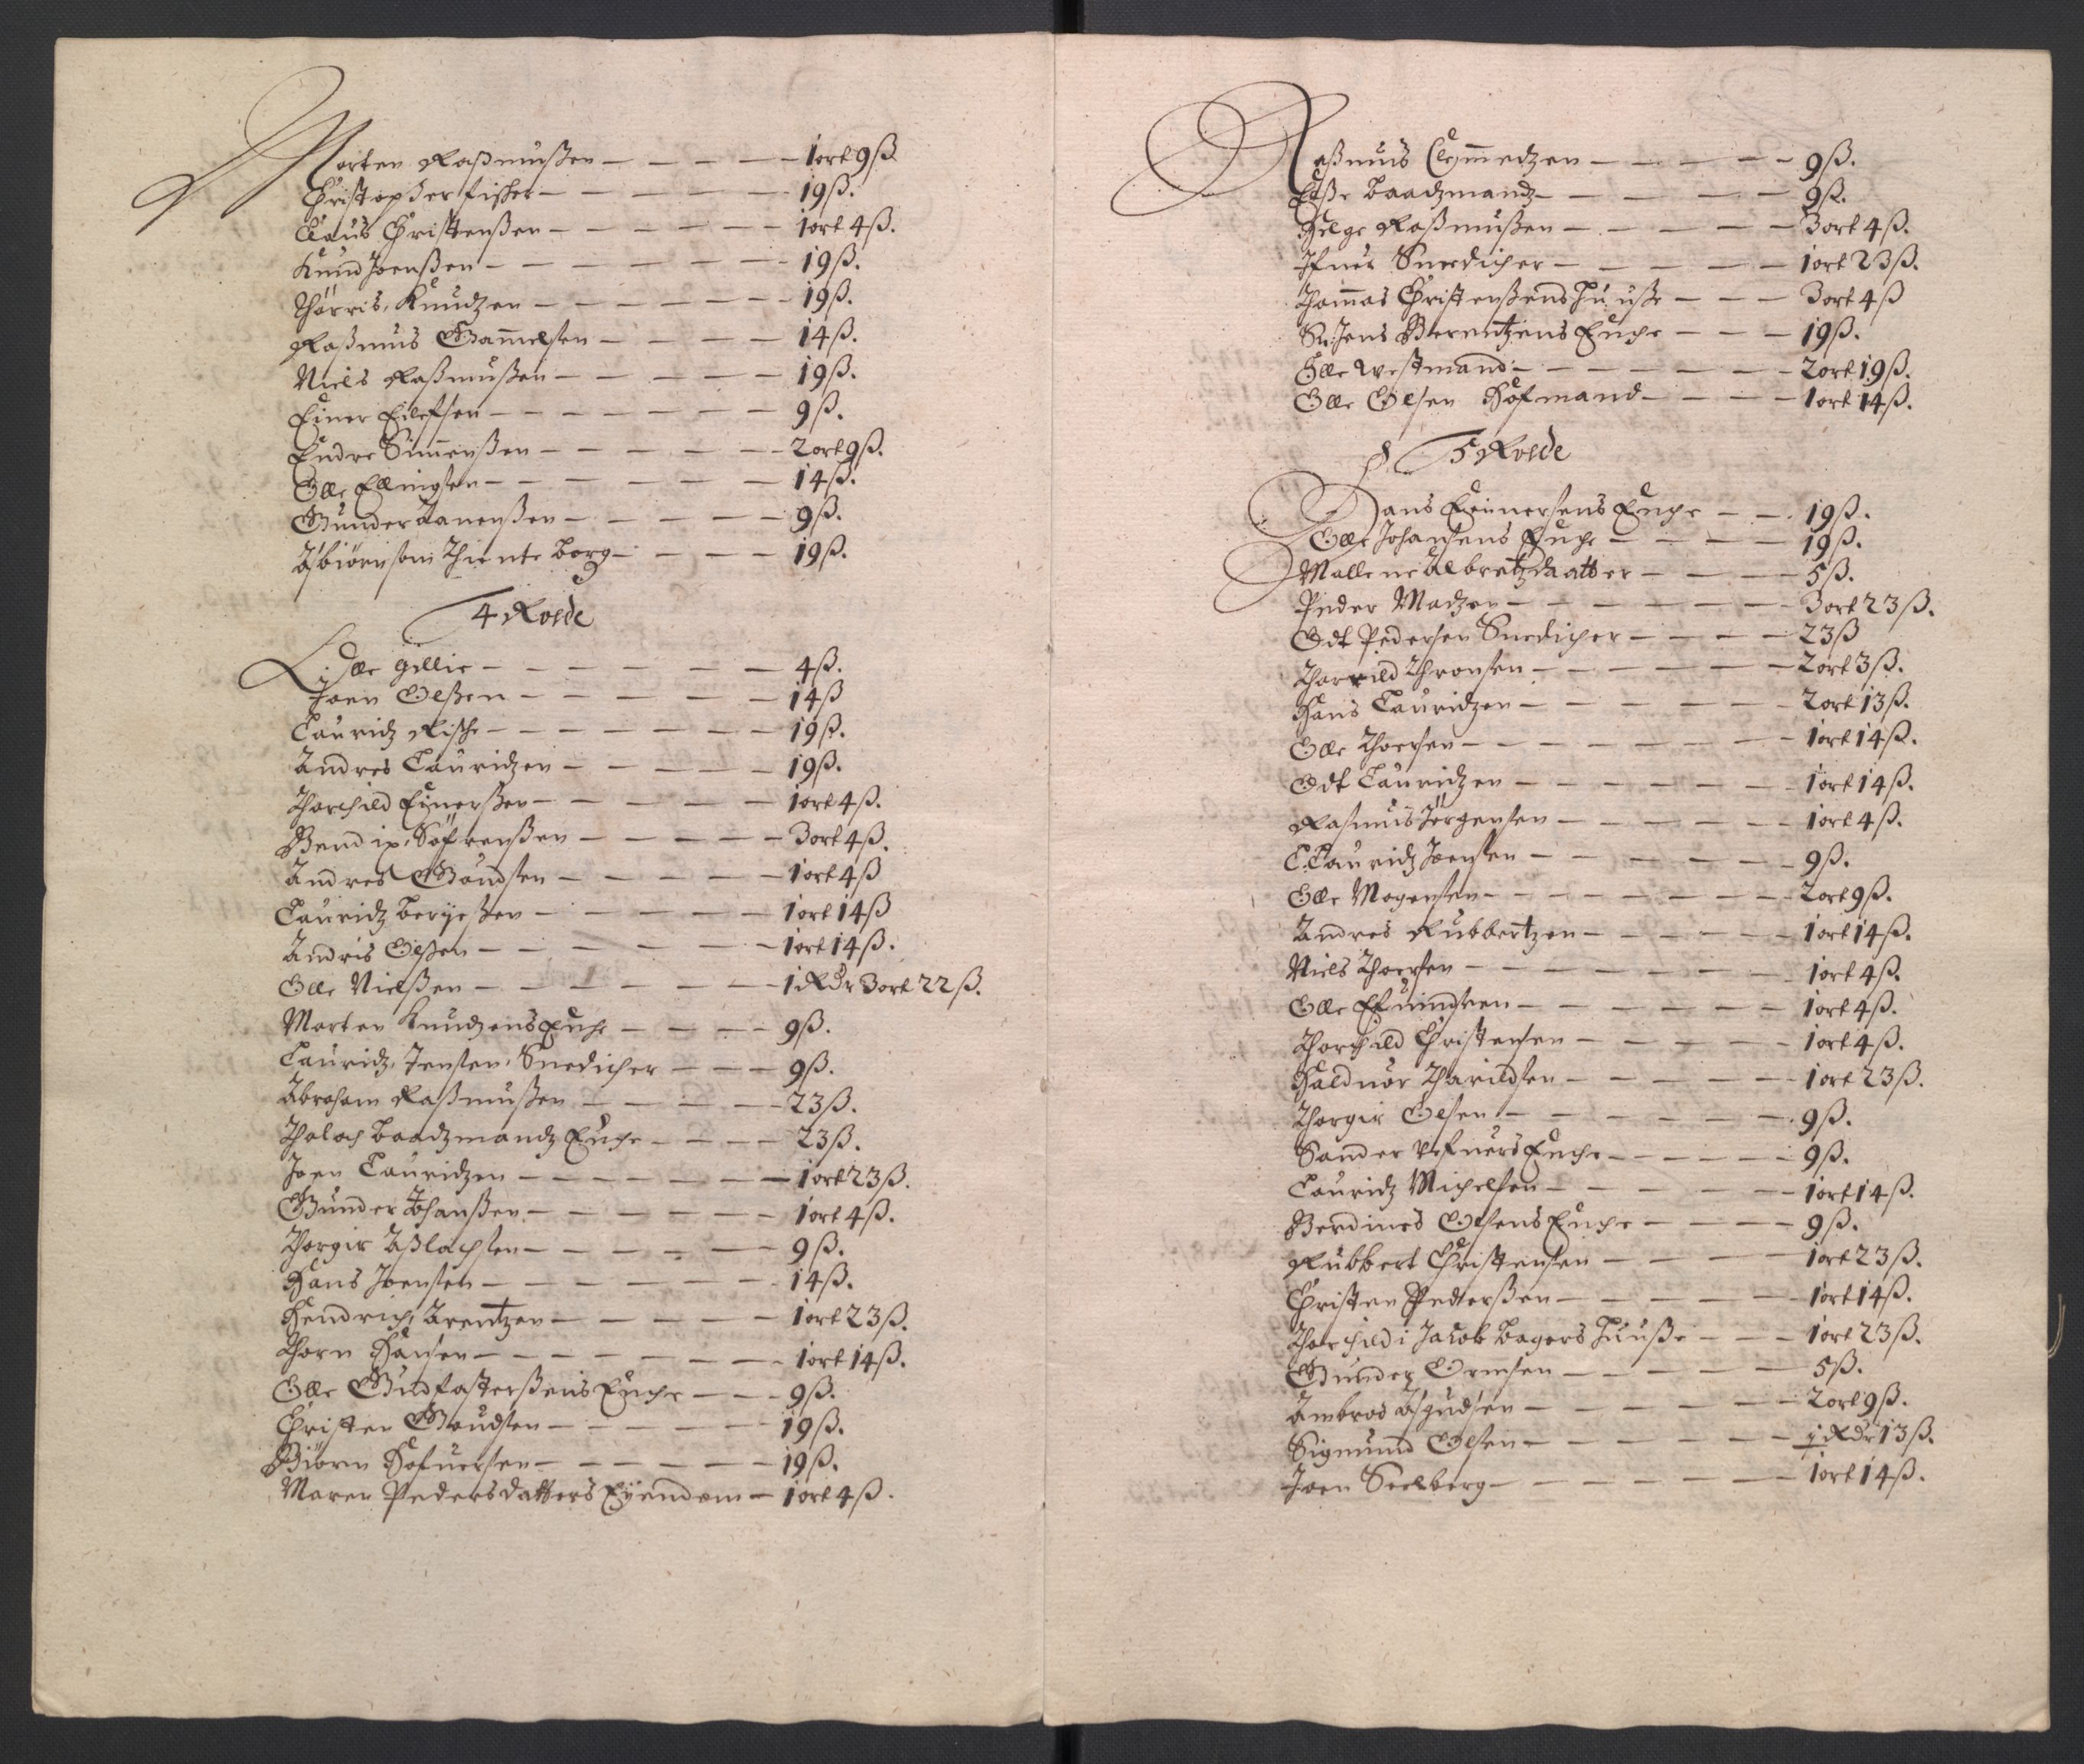 Morten Rasmussen — — — — — 1ort 9ß
Christopher fisker — — — — — — 19ß.
Claus Christenssen — — — — — — 1ort 4ß.
Knud Joenssen — — — — — — — 19ß.
Thörris Knudzen — — — — — — — 19ß.
Rasmus Gammelsen — — — — — 14ß.
Niels Rasmussen — — — — — — 19ß.
Einer Eilefsen — — — — — — — 9ß.
Endre Simenssen — — — — — — 2ort 9ß.
Olle Ellingsen — — — — — — — 14ß.
Gunder Aanenssen — — — — — — 9ß.
Asbiørn som thiente borg — — — — 19ß.
4 Rode
Lille gillie — — — — — — — 4ß.
Joen Olssen — — — — — — — 14ß
Lauridz Rische — — — — — — — 19ß.
Andres Lauridzen — — — — — — 19ß.
Thorchild Einerssen — — — — — — 1ort 4ß.
Bendix Söfrenssen — — — — — 3ort 4ß.
Andres Goudsen — — — — — — 1ort 4ß
Lauridz bergessen — — — — — — 1ort 14ß
Andris Olssen — — — — — — — 1ort 14ß.
Olle Nielssen — — — — — — — 1 Rdr 3ort 22ß.
Morten Knudzens Enche — — — — 9ß.
Lauridz Jensen Snedicher — — — 9ß.
Abraham Rasmussen — — — — — 23ß.
Tholach baadzmandz Enche — — — — 23ß.
Joen Lauridzen — — — — — — — 1ort 23ß.
Gunder Johanssen — — — — — — 1ort 4ß.
Thorgier Asslachsen — — — — — — 9ß.
Hans Joensen — — — — — — — 14ß.
Hendrich Arentzen — — — — — — 1ort 23ß.
Thorn Hansen — — — — — — — 1ort 14ß.
Olle Gudfasterssens Enche — — — 9ß.
Christen Goudsen — — — — — — 19ß.
Biörn Hofuersen — — — — — — 19ß.
Maren Pedersdatters Eyendom — 1ort 4ß.
Rasmus Clemmedzen — — — — — 9ß.
Elsse baadzmandz — — — — — — 9ß.
Helge Rasmussen — — — — — — 3ort 4ß.
Ifuer Snedicher — — — — — — 1ort 23ß.
Thommas Christenssens Huusse — — — 3ort 4ß
Sr: Jens Berentzens Enche — — — 19ß.
Olle westmand — — — — — — — 2ort 19ß.
Olle Olsen Hofmand — — — — 1ort 14ß.
5 Rode
Hans Einersens Enche — — 19ß.
Olle Johansens Enche — — — — 19ß.
Mallene Albretzdaatter — — — — 5ß.
Peder Madzen — — — — — — — 3ort 23ß.
Odt Pedersen Snedicher — — — — 23ß
Thorrild Thronsen — — — — — — 2ort 3ß.
Hans Lauridzen — — — — — — — 2ort 13ß.
Olle Thoersen — — — — — — — 1ort 14ß.
Odt Lauridzen — — — — — — — 1ort 14ß.
Rasmus Jörgensen — — — — — — 1ort 4ß.
Lauridz Joensen — — — — — — — 9ß.
Olle Mogensen — — — — — — — 2ort 9ß.
Andres Rubbertzen — — — — — — 1ort 14ß.
Niels Thoersen — — — — — — — 1ort 4ß.
Olle Efuindsen — — — — — — — 1ort 4ß.
Thorchild Christensen — — — — — 1ort 4ß.
Halduor Tharildsen — — — — — — 1ort 23ß.
Thorgir Olsen — — — — — — — 9ß.
Sander refuers Enche — — — — — 9ß.
Lauridz Michelsen — — — — — — 1ort 14ß.
Berdines Olsens Enche — — — — 9ß.
Rubbert Christensen — — — — — 1ort 23ß.
Christen Pederssen — — — — — — 1ort 14ß.
Thorchild i Jacob bagers Huusse — — — 1ort 23ß.
Gunder Ormsen — — — — — — 5ß.
Ambros Asgudsen — — — — — — — 2ort 9ß.
Sigmund Olsen — — — — — — — 1 Rdr 13ß.
Joen Seelberg — — — — — — — 1ort 14ß.